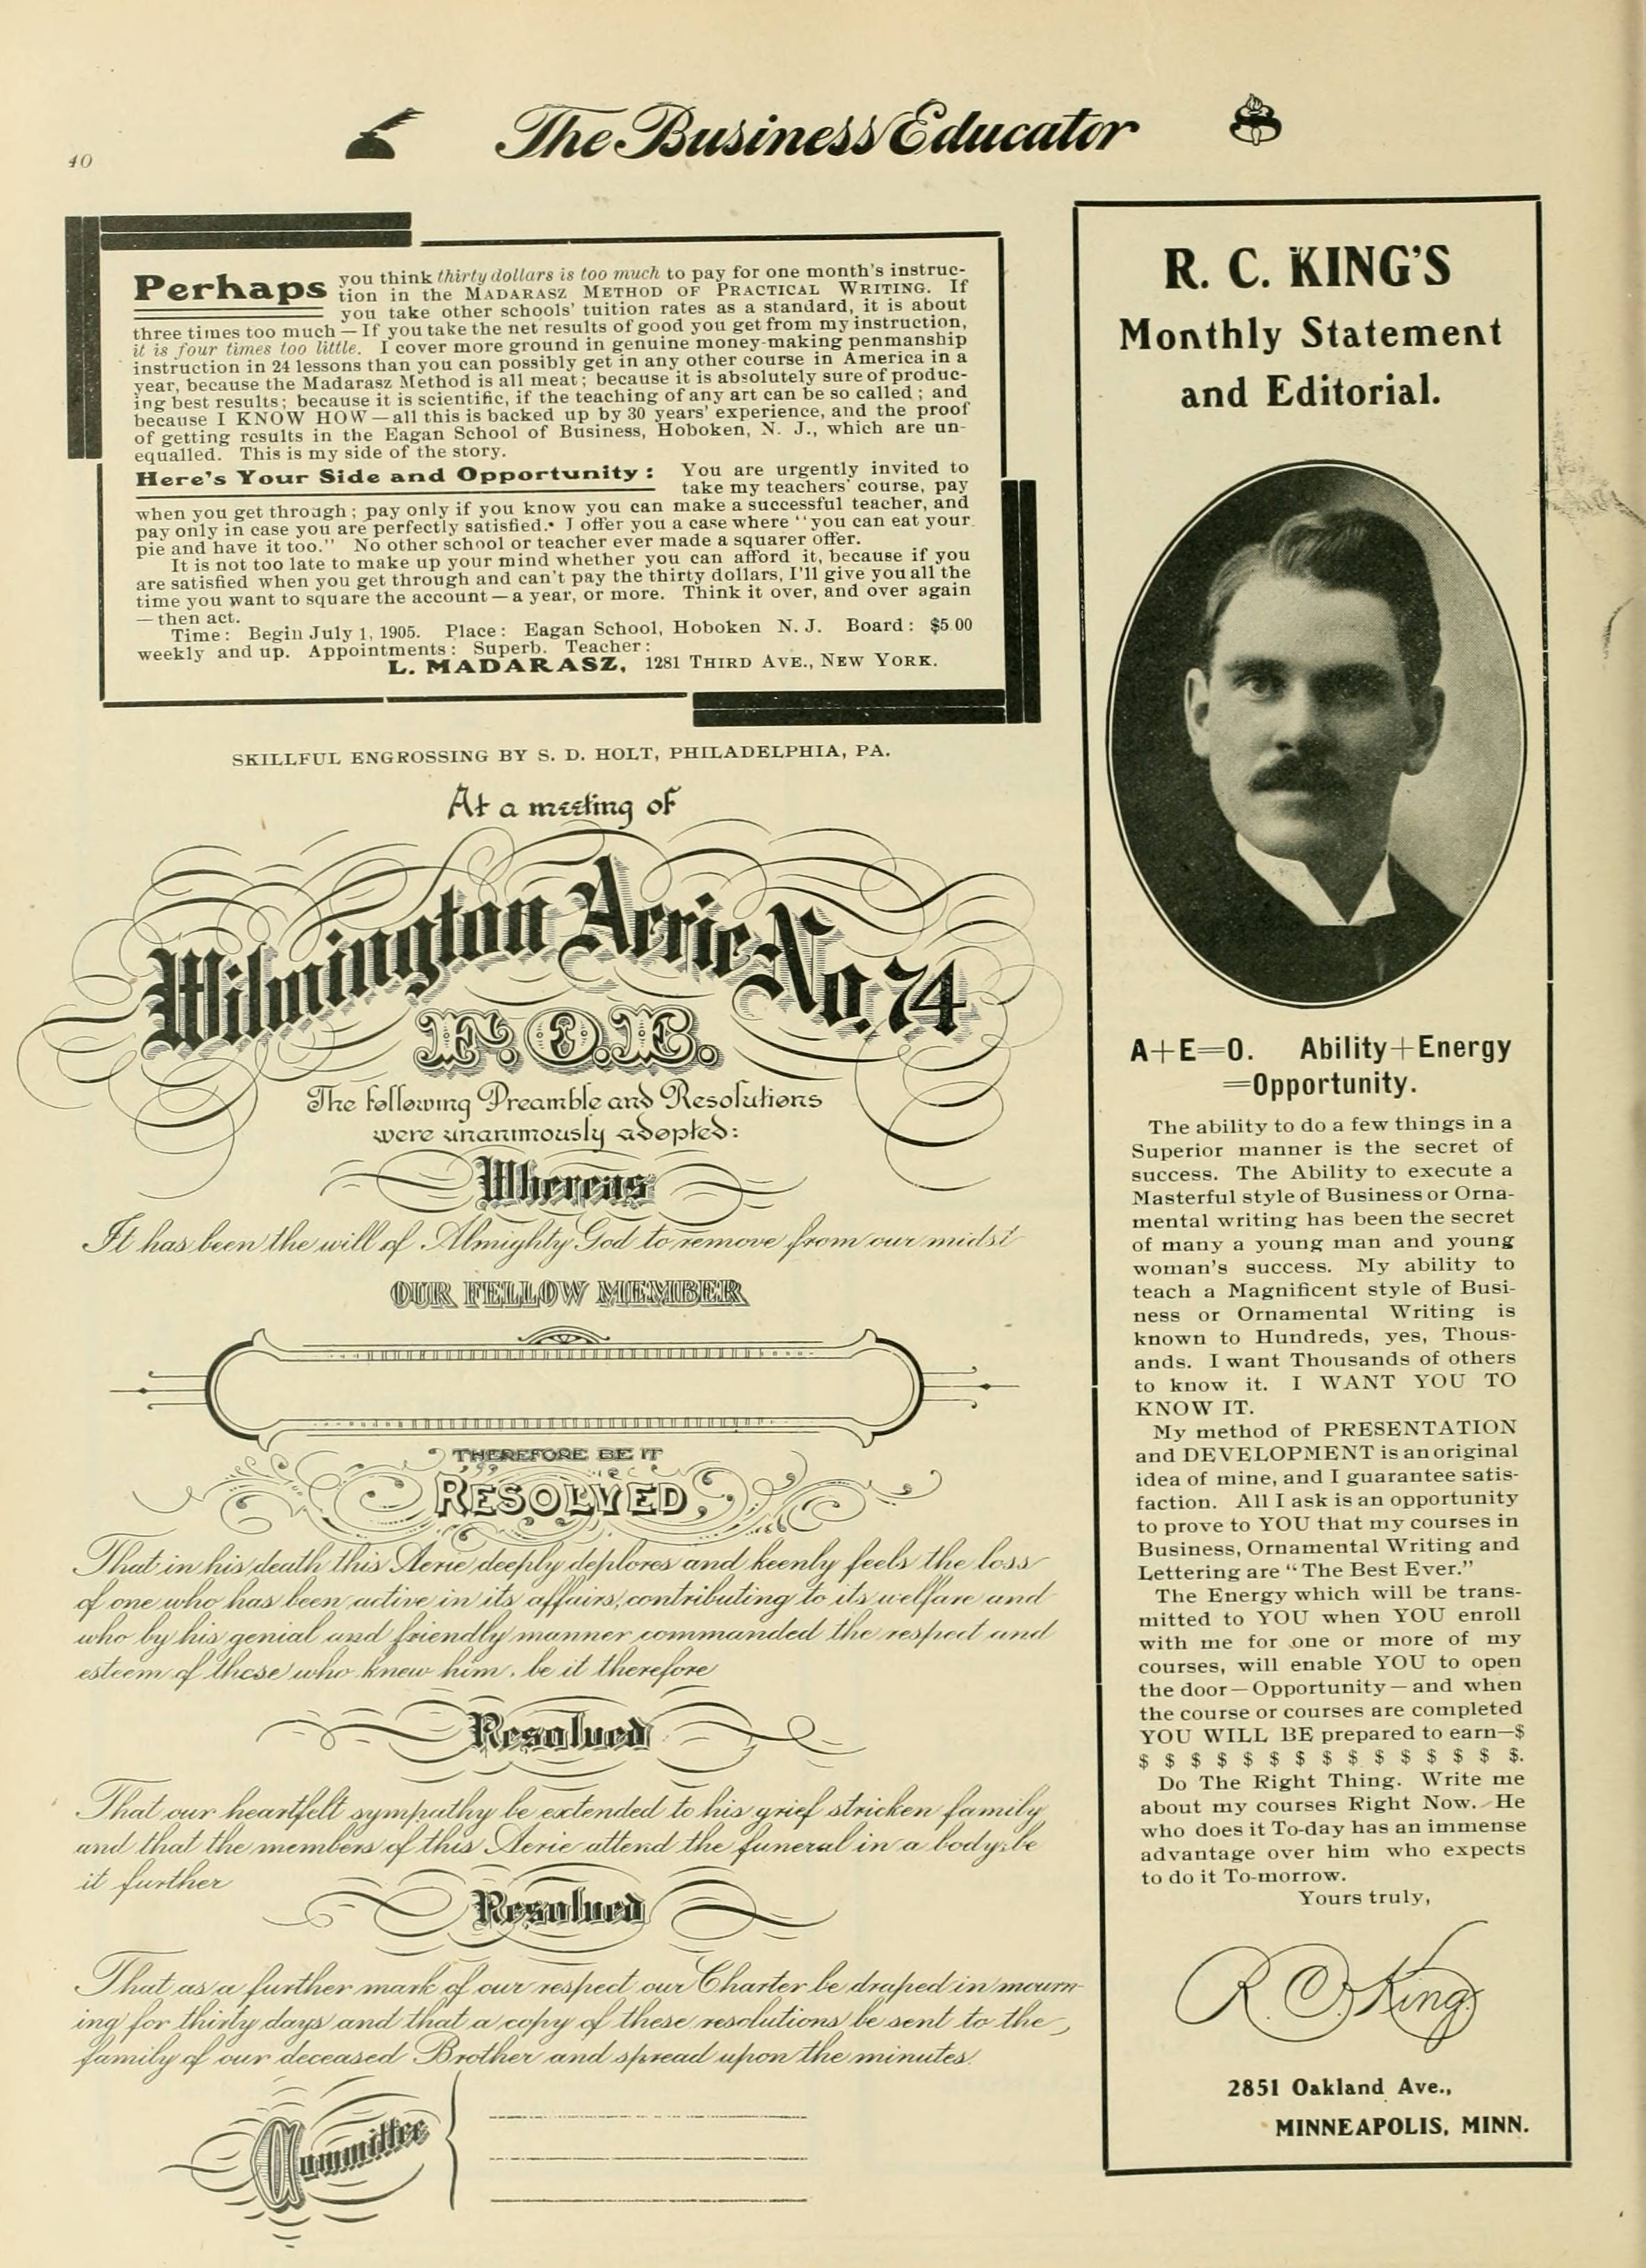 40
The Business Educator
Perhaps you think thirty dollars is too much to pay for one month's instruc-
tion in the MADARASZ METHOD OF PRACTICAL WRITING. If
you take other schools' tuition rates as a standard, it is about
three times too much — If you take the net results of good you get from my instruction,
it is four times too little. I cover more ground in genuine money-making penmanship
instruction in 24 lessons than you can possibly get in any other course in America in a
year, because the Madarasz Method is all meat; because it is absolutely sure of produc-
ing best results; because it is scientific, if the teaching of any art can be so called; and
because I KNOW HOW — all this is backed up by 30 years' experience, and the proof
of getting results in the Eagan School of Business, Hoboken, N. J., which are un-
equalled. This is my side of the story.
Here's Your Side and Opportunity: You are urgently invited to
take my teachers' course, pay
when you get through; pay only if you know you can make a successful teacher, and
pay only in case you are perfectly satisfied. I offer you a case where "you can eat your
pie and have it too." No other school or teacher ever made a squarer offer.
It is not too late to make up your mind whether you can afford it, because if you
are satisfied when you get through and can't pay the thirty dollars, I'll give you all the
time you want to square the account — a year, or more. Think it over, and over again
— then act.
Time: Begin July 1, 1905. Place: Eagan School, Hoboken N. J. Board: $5 00
weekly and up. Appointments: Superb. Teacher:
L. MADARASZ, 1281 THIRD AVE., NEW YORK.
SKILLFUL ENGROSSING BY S. D. HOLT, PHILADELPHIA, PA.
At a meeting of
Wilmington Aerie No. 74
F. O. E.
The following Preamble and Resolutions
were unanimously adopted:
Whereas
It has been the will of Almighty God to remove from our midst
OUR FELLOW MEMBER
THEREFORE BE IT
RESOLVED,
That in his death this Aerie deeply deplores and keenly feels the loss
of one who has been active in its affairs, contributing to its welfare and
who by his genial and friendly manner commanded the respect and
esteem of those who knew him, be it therefore
Resolved
That our heartfelt sympathy be extended to his grief stricken family
and that the members of this Aerie attend the funeral in a body; be
it further
Resolved
That as a further mark of our respect our Charter be draped in mourn-
ing for thirty days and that a copy of these resolutions be sent to the
family of our deceased Brother and spread upon the minutes.
Committee
R. C. KING'S
Monthly Statement
and Editorial.
A+E=O. Ability+Energy
=Opportunity.
The ability to do a few things in a
Superior manner is the secret of
success. The Ability to execute a
Masterful style of Business or Orna-
mental writing has been the secret
of many a young man and young
woman's success. My ability to
teach a Magnificent style of Busi-
ness or Ornamental Writing is
known to Hundreds, yes, Thous-
ands. I want Thousands of others
to know it. I WANT YOU TO
KNOW IT.
My method of PRESENTATION
and DEVELOPMENT is an original
idea of mine, and I guarantee satis-
faction. All I ask is an opportunity
to prove to YOU that my courses in
Business, Ornamental Writing and
Lettering are "The Best Ever."
The Energy which will be trans-
mitted to YOU when YOU enroll
with me for one or more of my
courses, will enable YOU to open
the door — Opportunity — and when
the course or courses are completed
YOU WILL BE prepared to earn—$
$ $ $ $ $ $ $ $ $ $ $ $ $ $ $.
Do The Right Thing. Write me
about my courses Right Now. He
who does it To-day has an immense
advantage over him who expects
to do it To-morrow.
Yours truly,
R. C. King.
2851 Oakland Ave.,
MINNEAPOLIS, MINN.